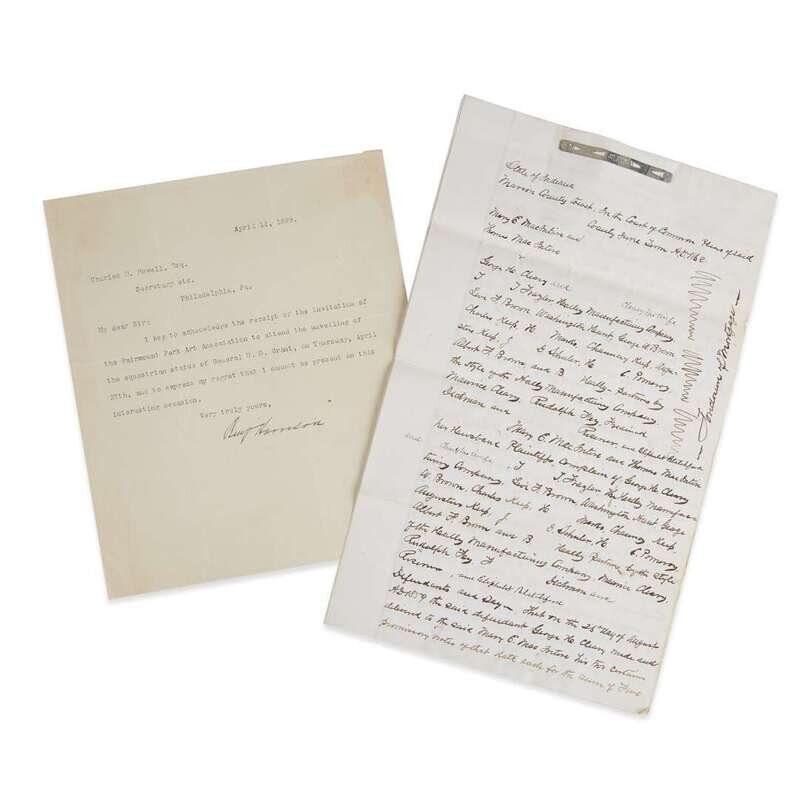 April 11, 1899.
Charles H. Howell, Esq.
Secretary etc.
Philadelphia, Pa.
My dear Sir:
I beg to acknowledge the receipt of the invitation of
the Fairmount Park Art Association to attend the unveiling of
the equestrian statue of General U. S. Grant, on Thursday, April
27th, and to express my regret that I cannot be present on this
interesting occasion.
Very truly yours,
Benj Harrison
State of Indiana
Marion County Court, In the Court of Common Pleas of said
County June Term A.D. 1860
Mary E. MacIntire and
Thomas Mac Intire
George H. Cleary and
T. J. Frazier Healey Manufacturing Company
Levi F. Brown Washington Hunt, George W. Brown
Charles Keep, H Marks Chauncey Keep, Augus-
tus Keep, J E Schuler, H C Pomeroy
Albert F. Brown, and B Healey Partners by
the Style of the Healey Manufacturing Company.
Maurice Cleary Rudolph Fey, Frederick
Dickman and
Mary E. MacIntire and Thomas MacIntire
Her Husband Plaintiffs Complain of George H. Cleary
and T. J. Frazier the Healey Manufac-
turing Company, Levi F. Brown Washington Hunt George
W. Brown, Charles Keep, H Marks Chauncey Keep
Augustus Keep, J E Schuler H C Pomeroy
Albert F. Brown and B Healey Partners by the Style
of the Healey Manufacturing Company, Maurice Cleary,
Rudolph Fey, F Dickman and
and Eliphalet Blatchford
Defendants and Say — That on the 26th day of August
A.D. 1859 the said defendant George H. Cleary made and
delivered to the said Mary E. MacIntire his two certain
promissory notes of that date each for the sum of Five